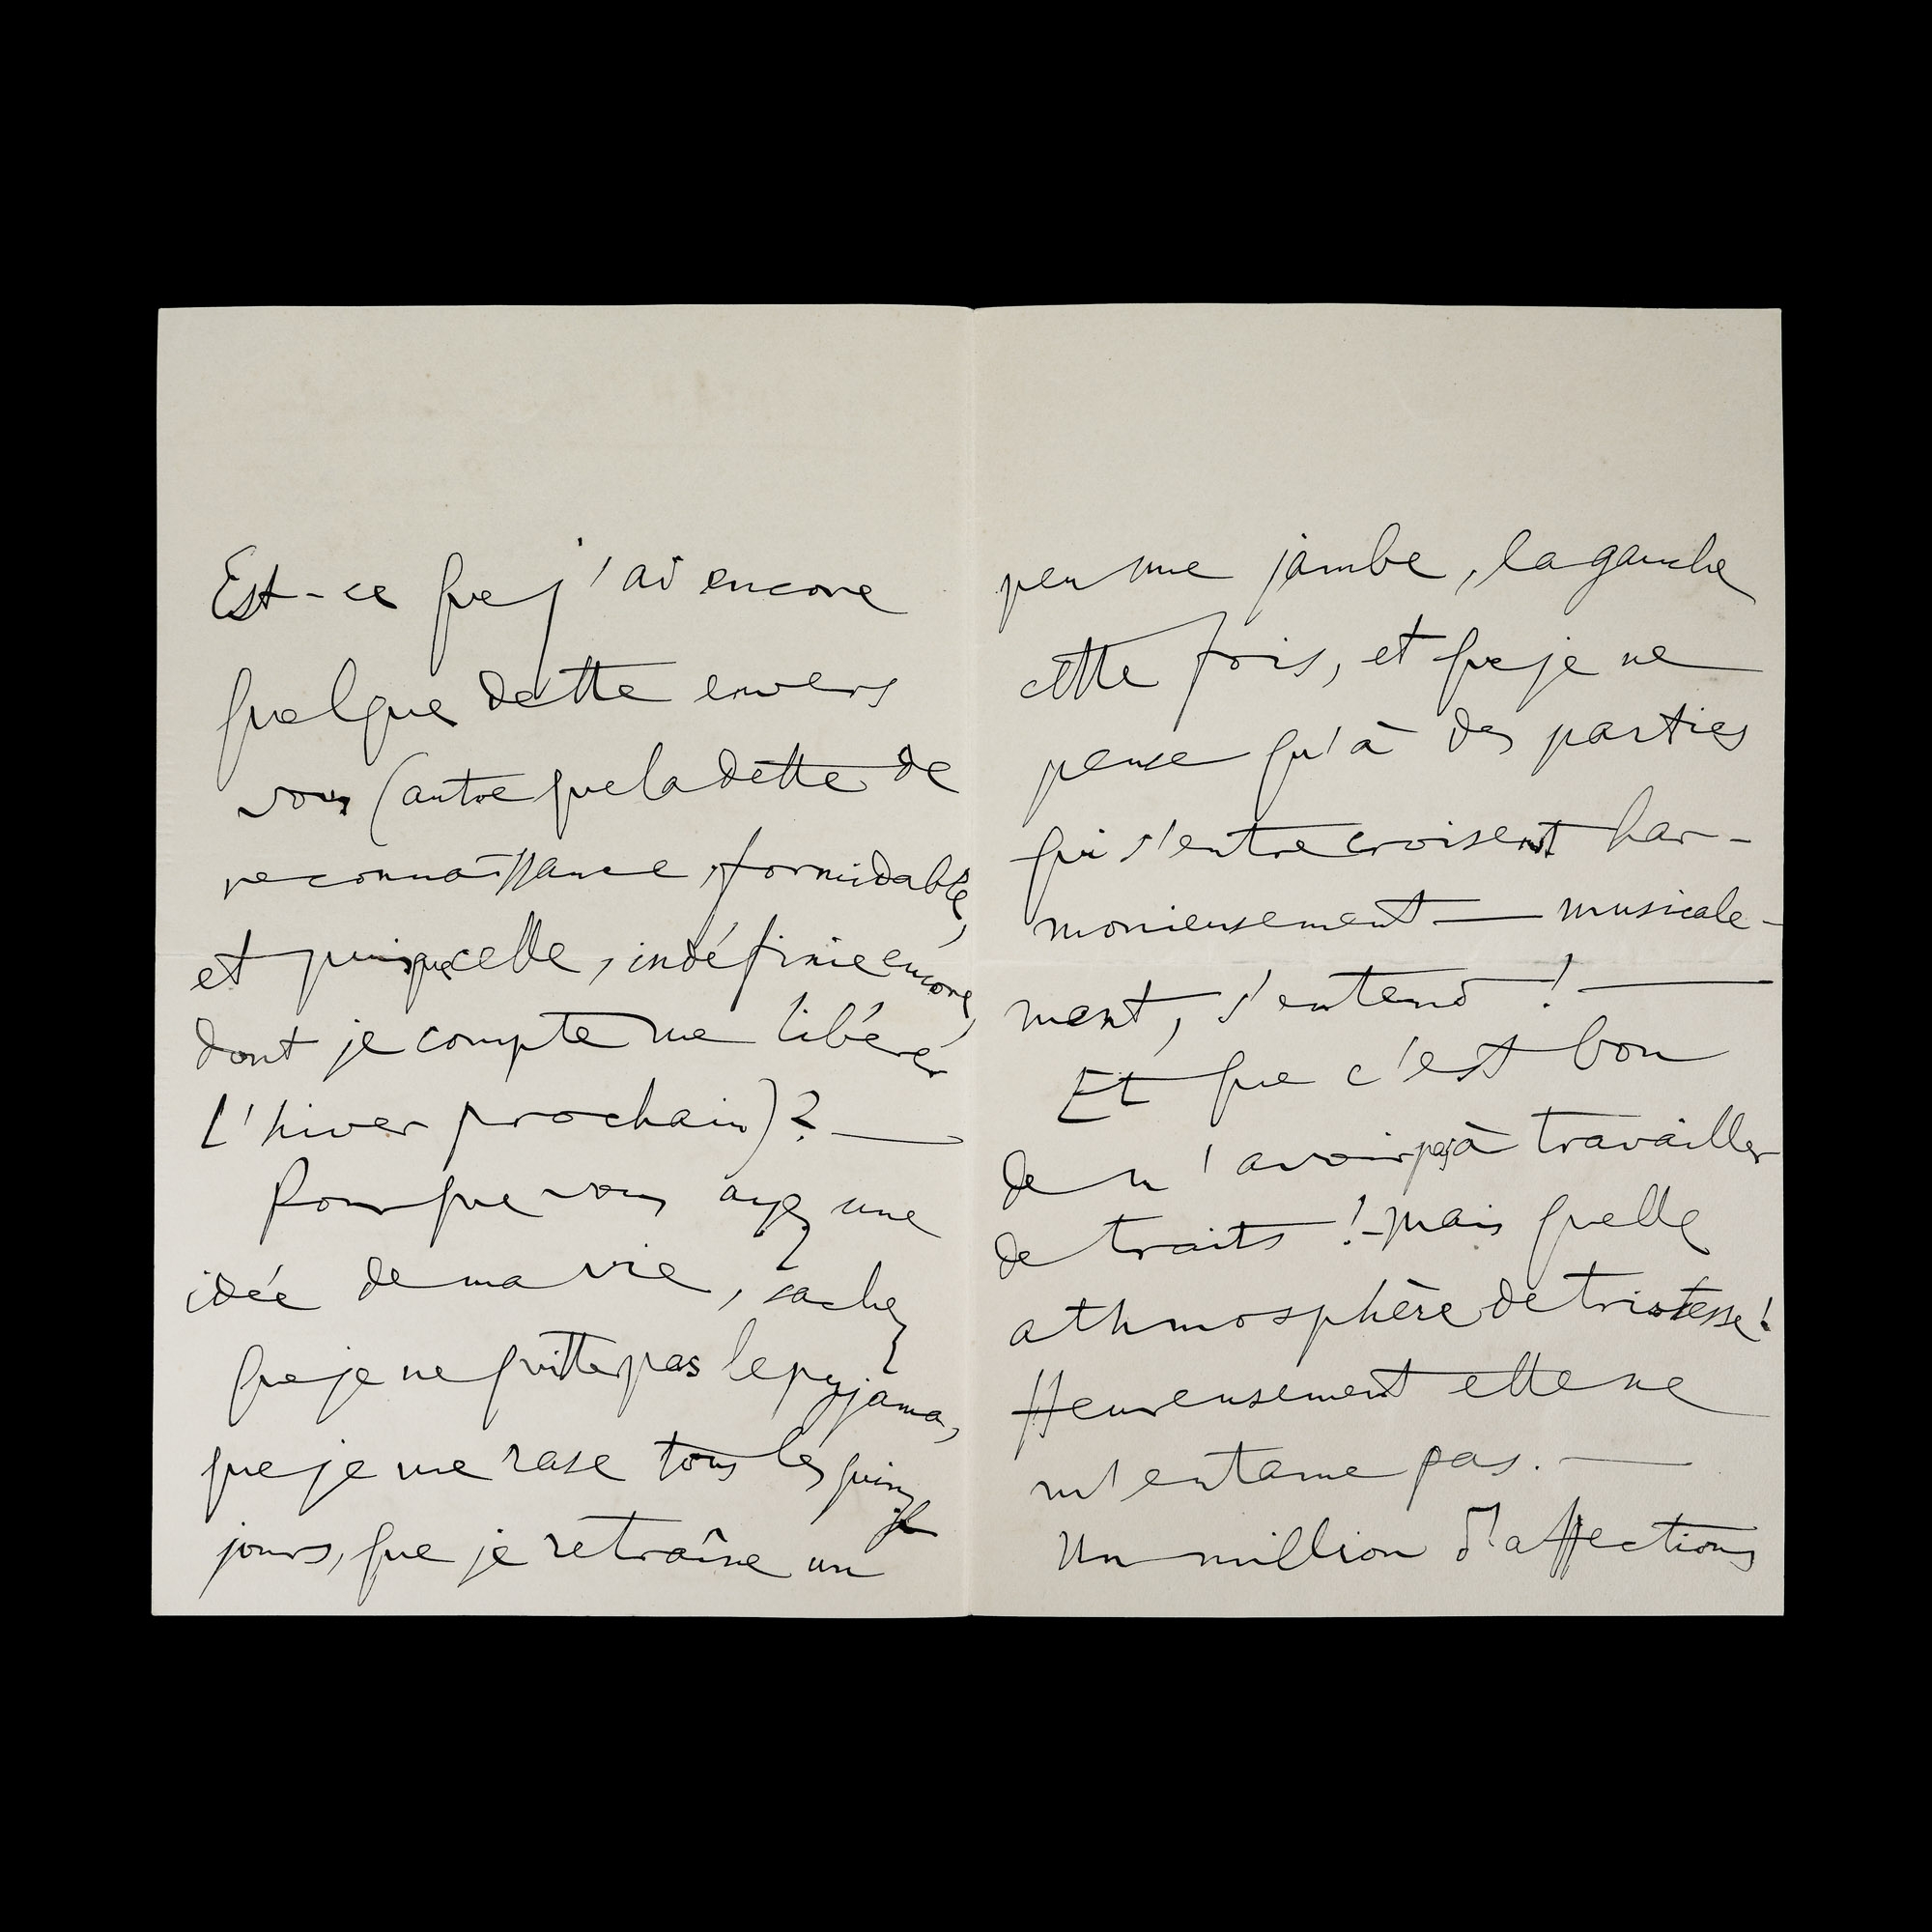 Est-ce que j'ai encore
quelque dette envers
vous (autre que la dette de
reconnaissance, formidable,
et puisque celle, indéfinie encore,
dont je compte me libérer
l'hiver prochain)? —
Pour que vous ayez une
idée de ma vie, sachez
que je ne quitte pas le pyjama,
que je me rase tous les quinze
jours, que je retraîne un
peu une jambe, la gauche
cette fois, et que je ne
pense qu'à des parties
qui s'entrecroisent har-
monieusement — musicale-
ment, s'entend ! —
Et que c'est bon
de n'avoir pas à travailler
de traits ! - Mais quelle
athmosphère de tristesse !
Heureusement elle ne
m'entame pas. —
Un million d'affections